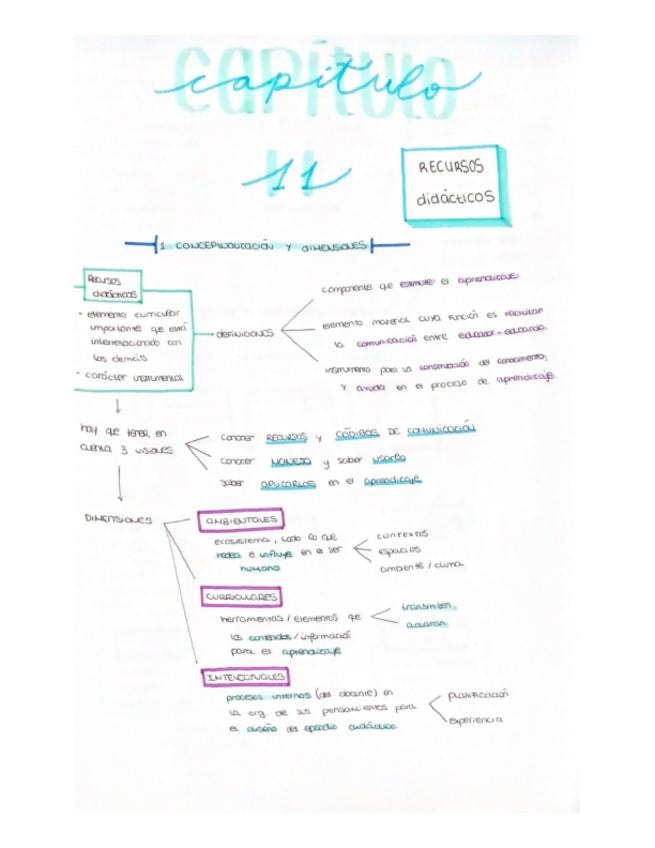 capítulo
11
RECURSOS
didácticos
1 CONCEPTUALIZACIÓN Y DIMENSIONES
Recursos
didácticos
- elemento curricular
importante que está
interrelacionando con
los demás
- carácter instrumental
DEFINICIONES
componente que estimule el aprendizaje
elemento material cuya función es facilitar
la comunicación entre educador-educando.
instrumento para la construcción del conocimiento;
y ayuda en el proceso de aprendizaje.
hay que tener en
cuenta 3 visiones
conocer RECURSOS y CÓDIGOS DE COMUNICACIÓN
conocer MANEJO y saber usarlo
saber APLICARLOS en el aprendizaje
DIMENSIONES
AMBIENTALES
ecosistema, todo lo que
rodea e influye en el ser
humano
contextos
espacios
ambiente / clima
CURRICULARES
herramientas / elementos que
los contenidos / información
para el aprendizaje
transmiten
aclaran
INTELECTUALES
procesos internos (del docente) en
la org. de sus pensamientos para
el diseño del episodio didáctico.
planificación
experiencia